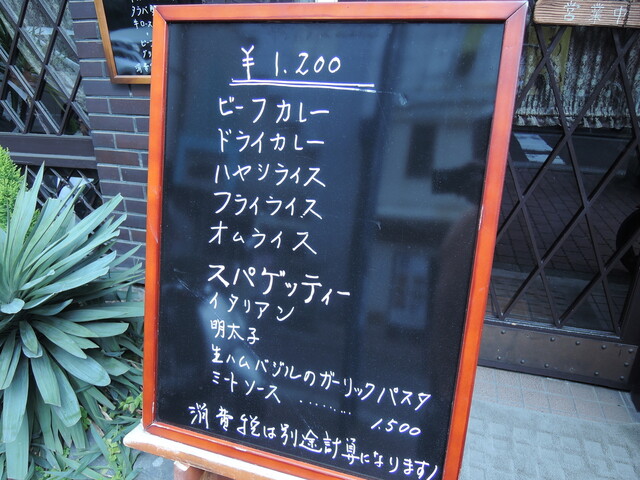 ¥1.200
ビーフカレー
ドライカレー
ハヤシライス
フライライス
オムライス
スパゲッティー
イタリアン
明太子
生ハムバジルのガーリックパスタ
ミートソース ......... 1,500
消費税は別途計算になります!
営業中